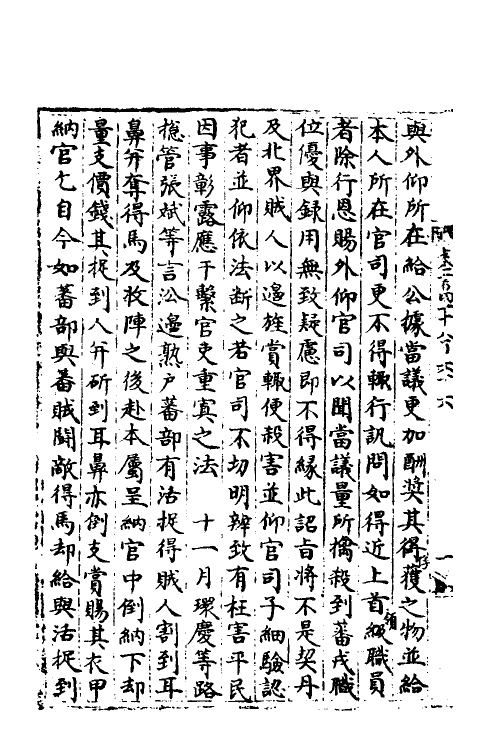 與外仰所在給公據當議更加酬奬其得獲之物並給
本人所在官司更不得輙行訊問如得近上首級職員
者除行恩賜外仰官司以聞當議量所擒殺到蕃戎職
位優與録用無致疑慮即不得緣此詔旨將不是契丹
及北界賊人以邀旌賞輙便殺害並仰官司子細驗認
犯者並仰依法斷之若官司不切明辨致有枉害平民
因事彰露應干繫官吏重寘之法　十一月環慶等路
揔管張斌等言沿邊熟户蕃部有活捉得賊人割到耳
鼻并奪得馬及殺陣之後赴本屬呈納官中倒納下却
量支價錢其捉到人并斫到耳鼻亦倒支賞賜其衣甲
納官乞自今如蕃部與蕃賊鬪敵得馬却給與活捉到